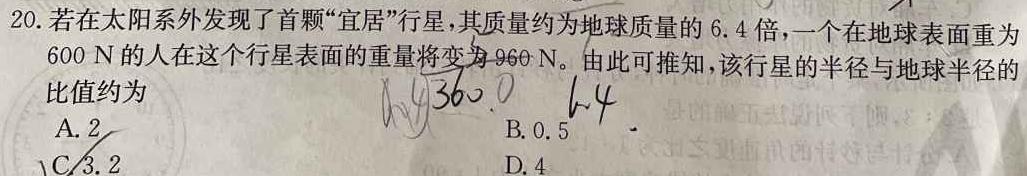 20. 若在太阳系外发现了首颗“宜居”行星,其质量约为地球质量的 6.4 倍,一个在地球表面重为
600 N 的人在这个行星表面的重量将变为 960 N。由此可推知,该行星的半径与地球半径的
比值约为
360.0 6.4
A. 2
B. 0.5
C. 3.2
D. 4